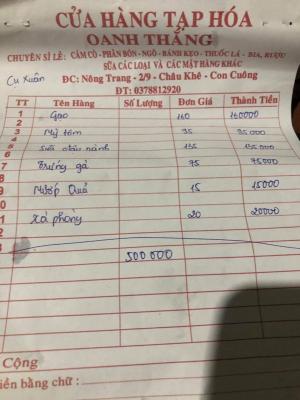 CỬA HÀNG TẠP HÓA
OANH THẮNG
CHUYÊN SỈ LẺ: CÁM CÒ - PHÂN BÓN - NGÔ - BÁNH KẸO - THUỐC LÁ - BIA, RƯỢU
SỮA CÁC LOẠI VÀ CÁC MẶT HÀNG KHÁC
Cụ Xuân
ĐC: Nông Trang - 2/9 - Châu Khê - Con Cuông
ĐT: 0378812920
TT Tên Hàng Số Lượng Đơn Giá Thành Tiền
1 Gạo 160 160000
3 Mỳ tôm 35 35000
5 Sữa đậu nành 195 195000
7 Trứng gà 75 75000
9 Mướp Quả 15 15000
1 Xà phong 20 20000
3
500 000
Cộng
iền bằng chữ :